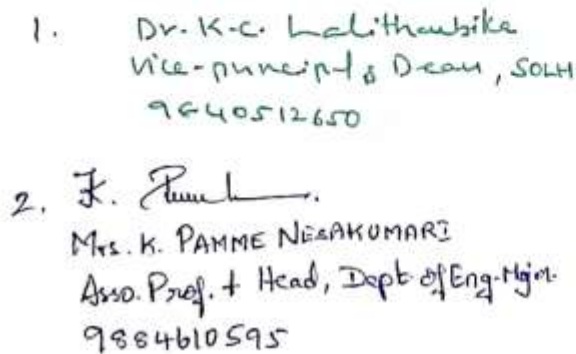 1. Dr. K.C. Lalithambika
Vice-principal & Dean, SOLH
9840512650
2. K.
Mrs. K. PAMME NESAKUMARI
Asso. Prof. & Head, Dept of Eng.
9884610595